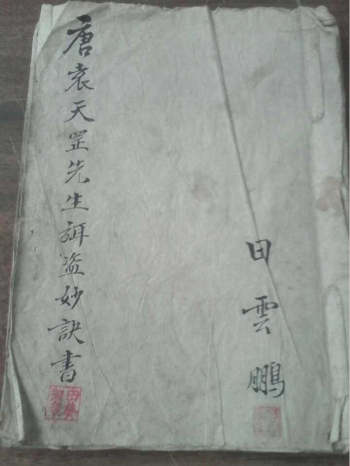 唐袁天罡先生弭盗妙訣書
田雲鵬